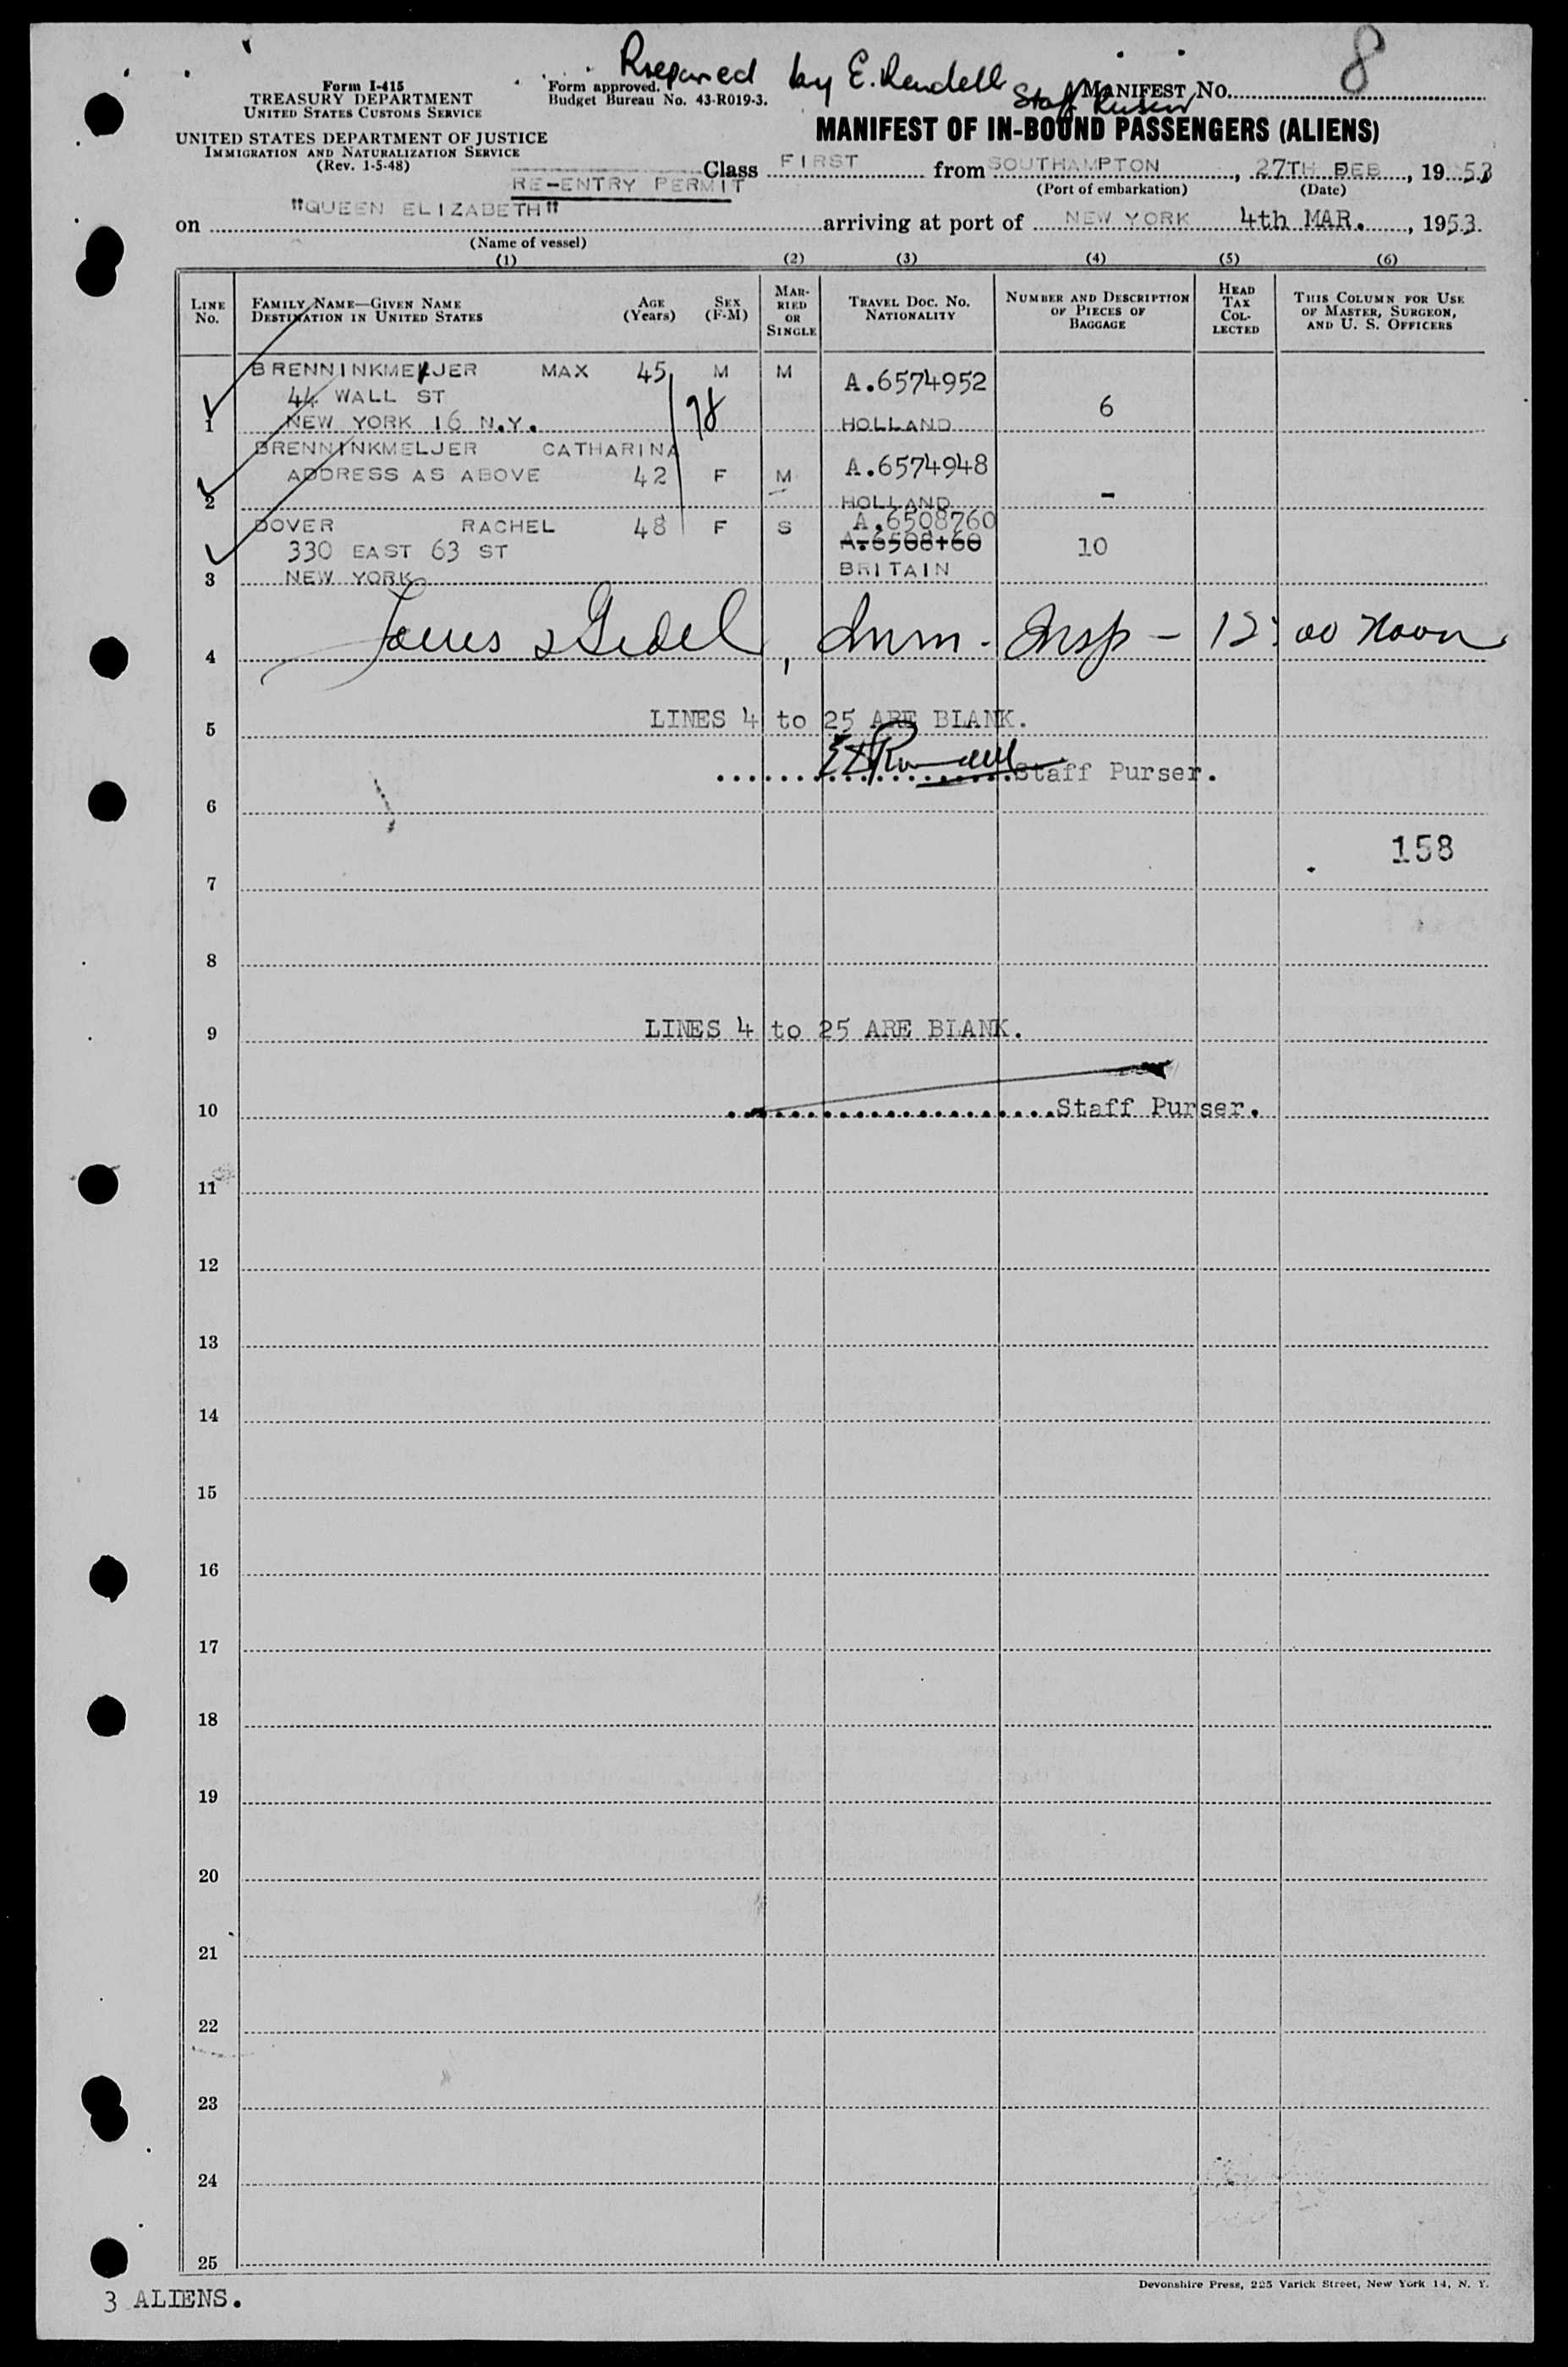 Prepared by E. Rendell
Staff Purser
8
Form I-415
TREASURY DEPARTMENT
UNITED STATES CUSTOMS SERVICE
UNITED STATES DEPARTMENT OF JUSTICE
IMMIGRATION AND NATURALIZATION SERVICE
(Rev. 1-5-48)
Form approved.
Budget Bureau No. 43-R019-3.
MANIFEST NO.
MANIFEST OF IN-BOUND PASSENGERS (ALIENS)
Class FIRST from SOUTHAMPTON, 27TH FEB, 1953
RE-ENTRY PERMIT
(Port of embarkation) (Date)
on "QUEEN ELIZABETH" arriving at port of NEW YORK 4th MAR., 1953.
(Name of vessel)
(1) (2) (3) (4) (5) (6)
LINE NO.
FAMILY NAME—GIVEN NAME
DESTINATION IN UNITED STATES
AGE (Years)
SEX (F-M)
MARRIED OR SINGLE
TRAVEL DOC. NO. NATIONALITY
NUMBER AND DESCRIPTION OF PIECES OF BAGGAGE
HEAD TAX COLLECTED
THIS COLUMN FOR USE OF MASTER, SURGEON, AND U. S. OFFICERS
BRENNINKMEIJER MAX 45 M M A.6574952
44 WALL ST 6
1 NEW YORK 16 N.Y. HOLLAND
BRENNINKMELJER CATHARINA
ADDRESS AS ABOVE 42 F M A.6574948
2 HOLLAND -
DOVER RACHEL 48 F S A.6508760
330 EAST 63 ST 10
3 NEW YORK BRITAIN
4 Imm. Insp - 12:00 Noon
LINES 4 to 25 ARE BLANK.
5
Staff Purser.
6
158
7
8
9 LINES 4 to 25 ARE BLANK.
10 Staff Purser.
11
12
13
14
15
16
17
18
19
20
21
22
23
24
25
Devonshire Press, 225 Varick Street, New York 14, N. Y.
3 ALIENS.